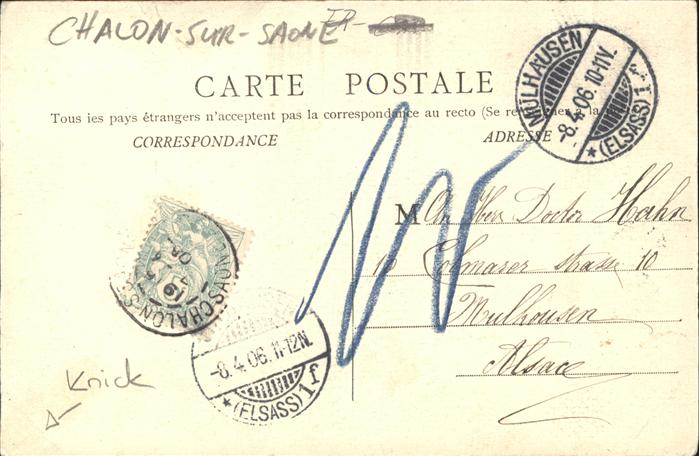 CHALON-SUR-SAONE FR-
CARTE POSTALE
Tous les pays étrangers n'acceptent pas la correspondance au recto (Se renseigner à la
CORRESPONDANCE
ADRESSE
MÜLHAUSEN
-8.4.06.10-11V.
*(ELSASS)1f
M An Herr Doctor Hahn
10 Colmarer strasse 10
Mulhousen
Alsace
CHALON-S-SAONE
-8.4.06.11-12N.
*(ELSASS)1f
Knick